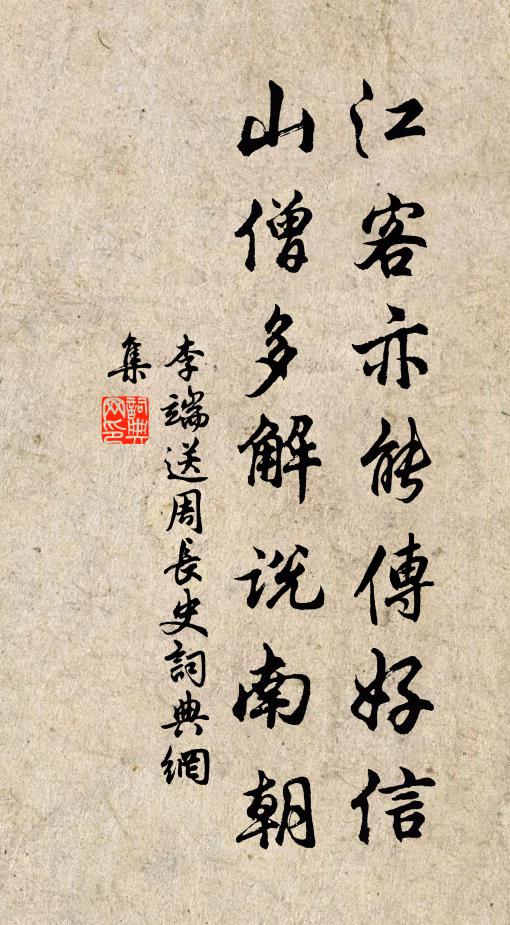 江客亦能傳好信
山僧多解説南朝
李端送周長史詞典網
集
詞典
网印